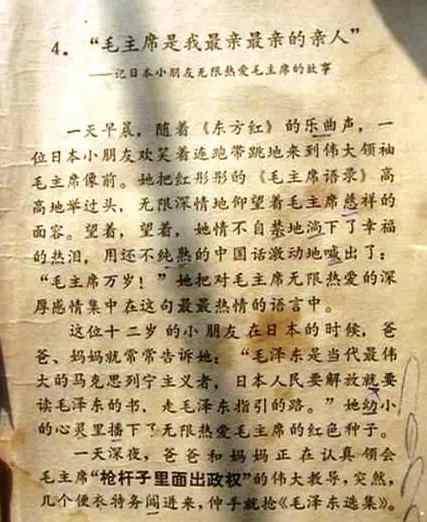 4. “毛主席是我最亲最亲的亲人”
——记日本小朋友无限热爱毛主席的故事
一天早晨，随着《东方红》的乐曲声，一
位日本小朋友欢笑着连跑带跳地来到伟大领袖
毛主席像前。她把红彤彤的《毛主席语录》高
高地举过头，无限深情地仰望着毛主席慈祥的
面容。望着，望着，她情不自禁地淌下了幸福
的热泪，用还不纯熟的中国话激动地喊出了：
“毛主席万岁！”她把对毛主席无限热爱的深
厚感情集中在这句最最热情的语言中。
这位十二岁的小朋友在日本的时候，爸
爸、妈妈就常常告诉她：“毛泽东是当代最伟
大的马克思列宁主义者，日本人民要解放就要
读毛泽东的书，走毛泽东指引的路。”她幼小
的心灵里播下了无限热爱毛主席的红色种子。
一天深夜，爸爸和妈妈正在认真领会
毛主席“枪杆子里面出政权”的伟大教导，突然，
几个便衣特务闯进来，伸手就抢《毛泽东选集》。